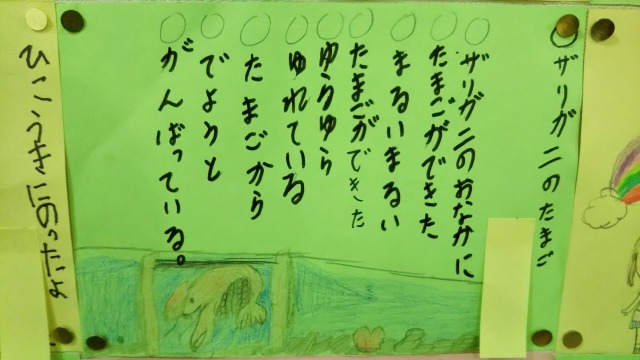 ザリガニのたまご
ザリガニのおなかに
たまごができた
まるいまるい
たまごができた
ゆらゆら
ゆれている
たまごから
でようと
がんばっている。
ひこうきにのったよ